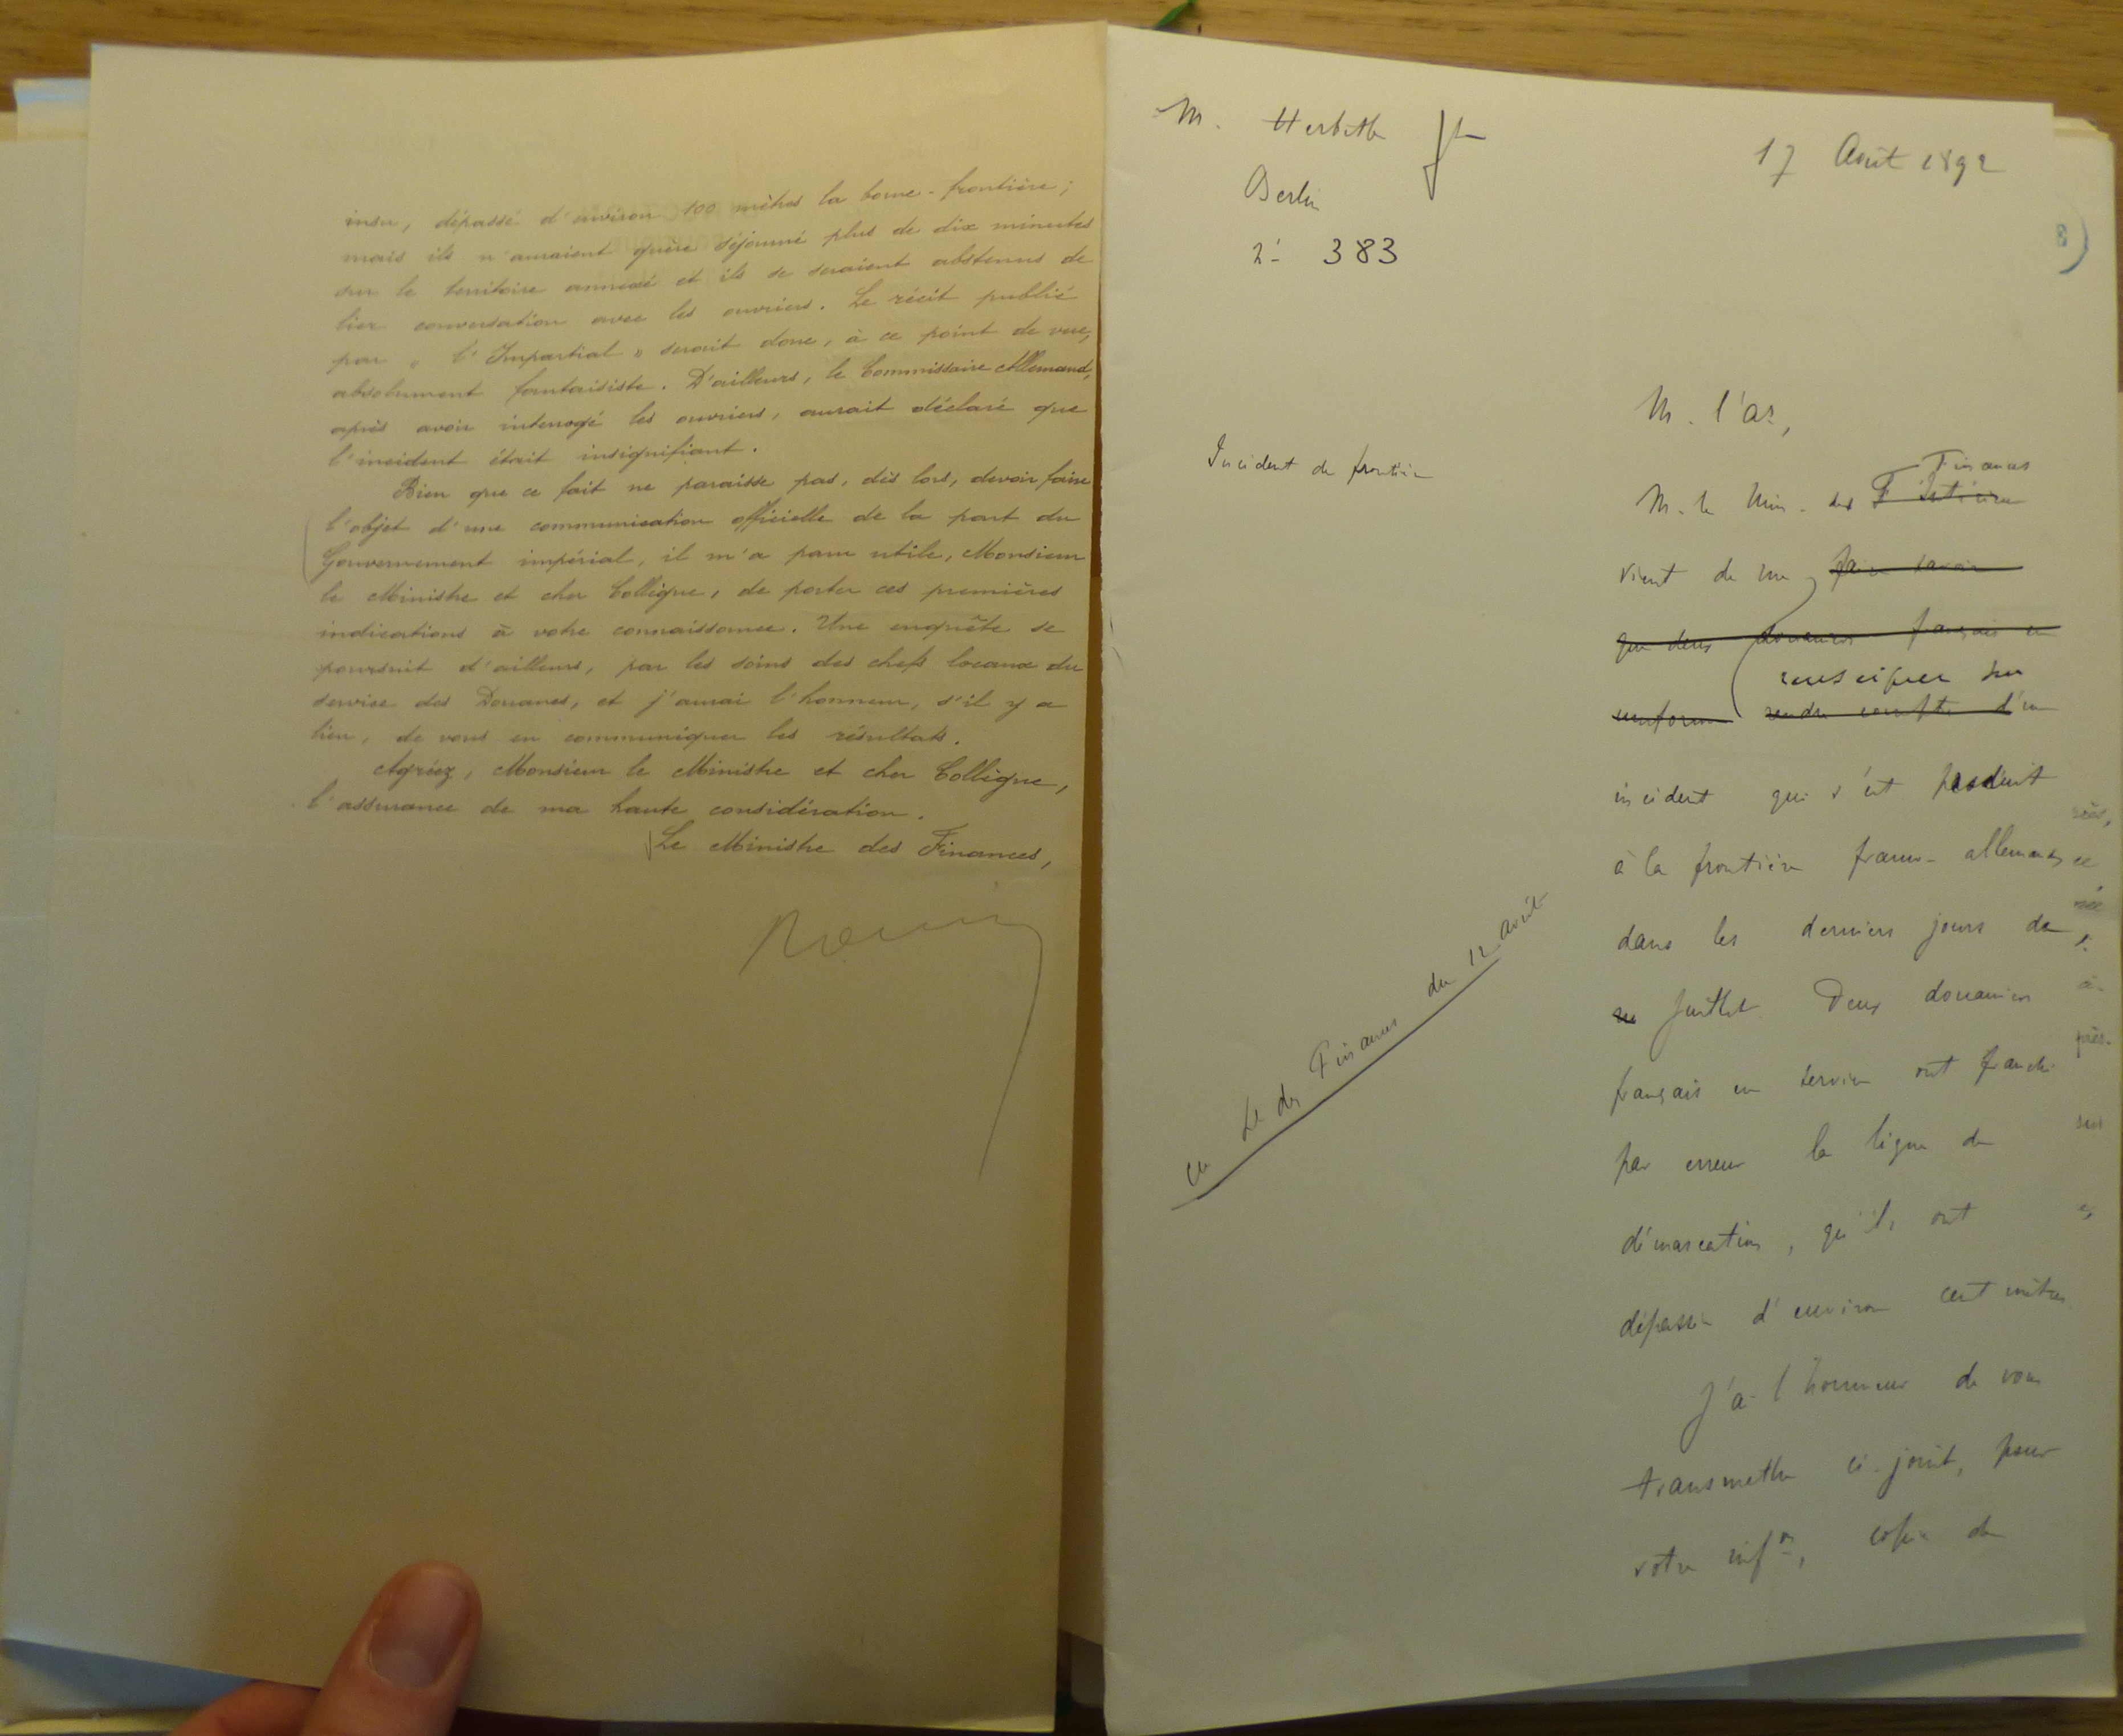 insu, dépassé d'environ 100 mètres la borne-frontière;
mais ils n'auraient guère séjourné plus de dix minutes
sur le territoire annexé et ils se seraient abstenus de
lier conversation avec les ouvriers. Le récit publié
par "l'Impartial" serait donc, à ce point de vue,
absolument fantaisiste. D'ailleurs, le Commissaire Allemand,
après avoir interrogé les ouvriers, aurait déclaré que
l'incident était insignifiant.
Bien que ce fait ne paraisse pas, dès lors, devoir faire
l'objet d'une communication officielle de la part du
Gouvernement impérial, il m'a paru utile, Monsieur
le Ministre et cher Collègue, de porter ces premières
indications à votre connaissance. Une enquête se
poursuit d'ailleurs, par les soins des chefs locaux du
service des Douanes, et j'aurai l'honneur, s'il y a
lieu, de vous en communiquer les résultats.
Agréez, Monsieur le Ministre et cher Collègue,
l'assurance de ma haute considération.
Le Ministre des Finances,
M. Herbette
Berlin
383
17 Août 1892
Incident de frontière
M. l'a,
Finances
M. le Min. des
vient de me faire savoir
que deux douaniers français en
renseigner sur
uniforme rendre compte d'un
incident qui s'est produit
à la frontière franco-allemande
dans les derniers jours de
Juillet. Deux douaniers
français en service ont franchi
par erreur la ligne de
démarcation, qu'ils ont
dépassée d'environ cent mètres.
J'ai l'honneur de vous
transmettre ci-joint, pour
votre inf.on, copie de
des Finances du 12 août